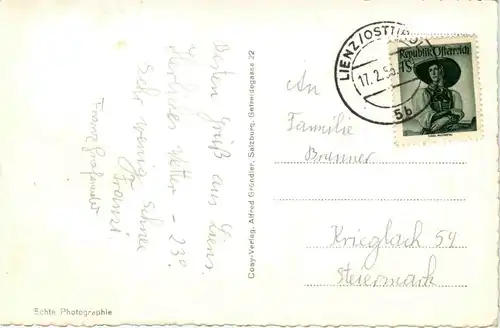 Besten Gruß aus Lienz.
Herrliches Wetter - 23°
Sehr wenig Schnee
Franzi
Franz
Cosy-Verlag, Alfred Gründler, Salzburg, Getreidegasse 22
Echte Photographie
LIENZ/OSTTIROL
17.2.56
5b
Republik Österreich
1S
An
Familie
Brunner
Krieglach 54
Steiermark